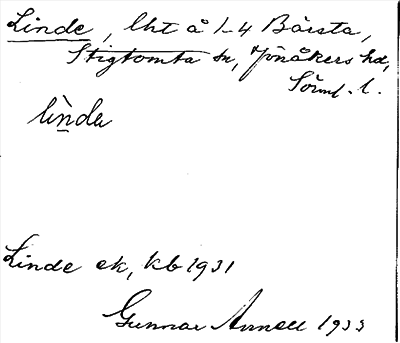 Linde, lht å 1-4 Bärsta,
Stigtomta sn, Jönåkers hd,
Söml. l.
lìnde
Linde ek, kb 1931
Gunnar Arnell 1933